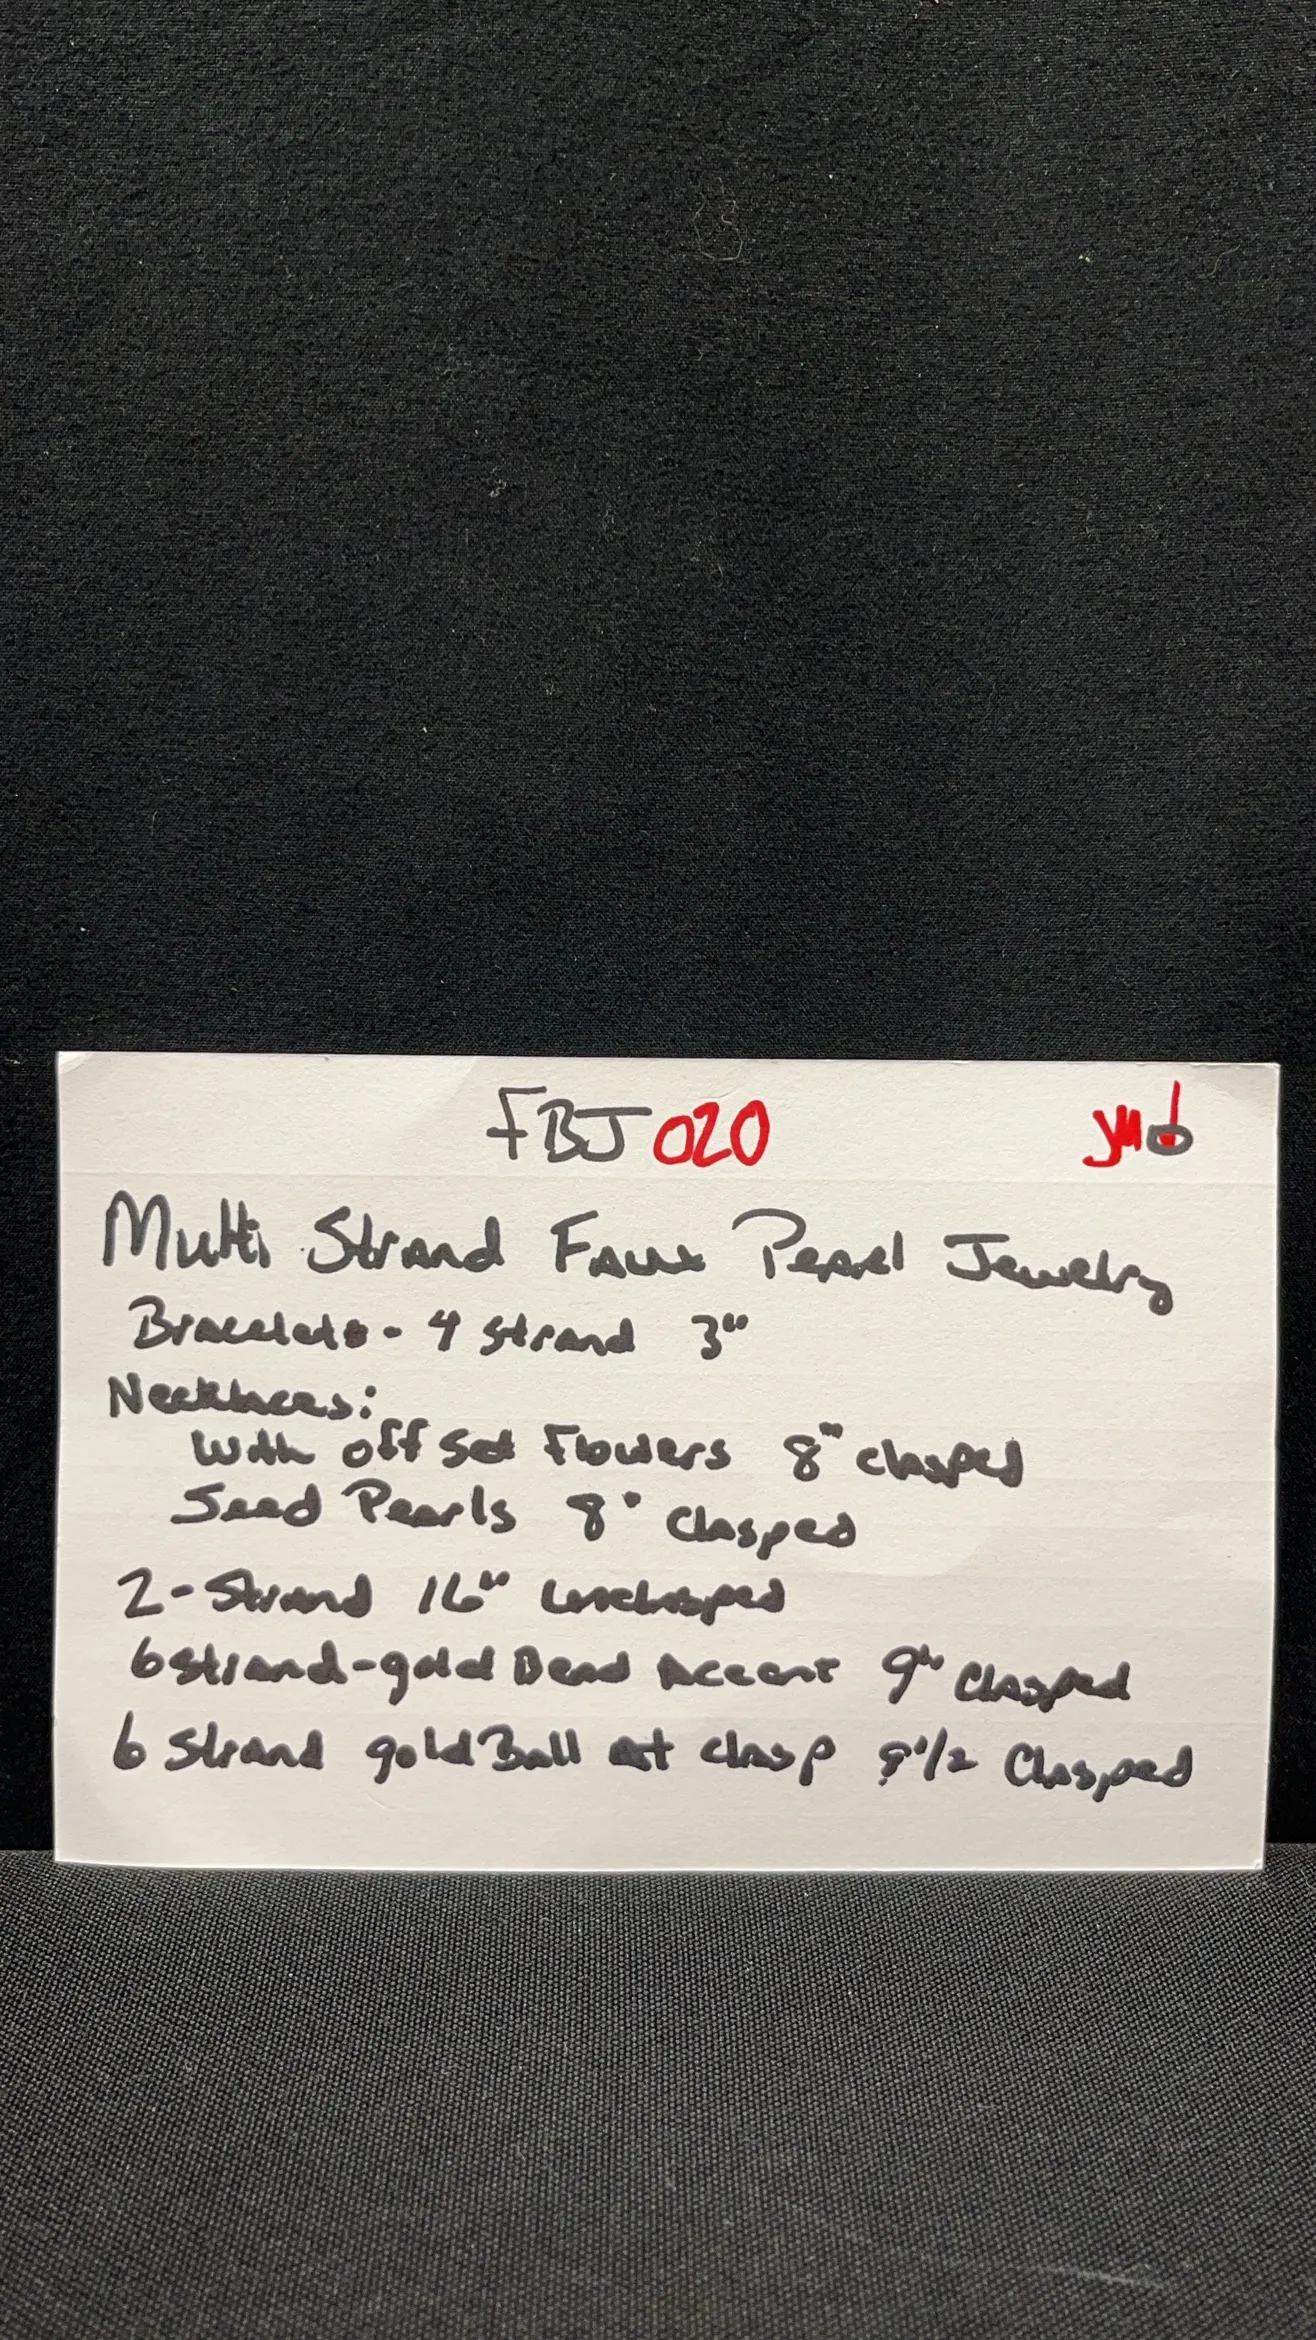 FBJ 020
Multi Strand Faux Pearl Jewelry
Bracelet - 4 strand 3"
Necklaces:
With off set Flowers 8" clasped
Seed Pearls 8" Clasped
2-Strand 16" unclasped
6 strand-gold Bead Accent 9" Clasped
6 Strand gold Ball at clasp 9"1/2 Clasped